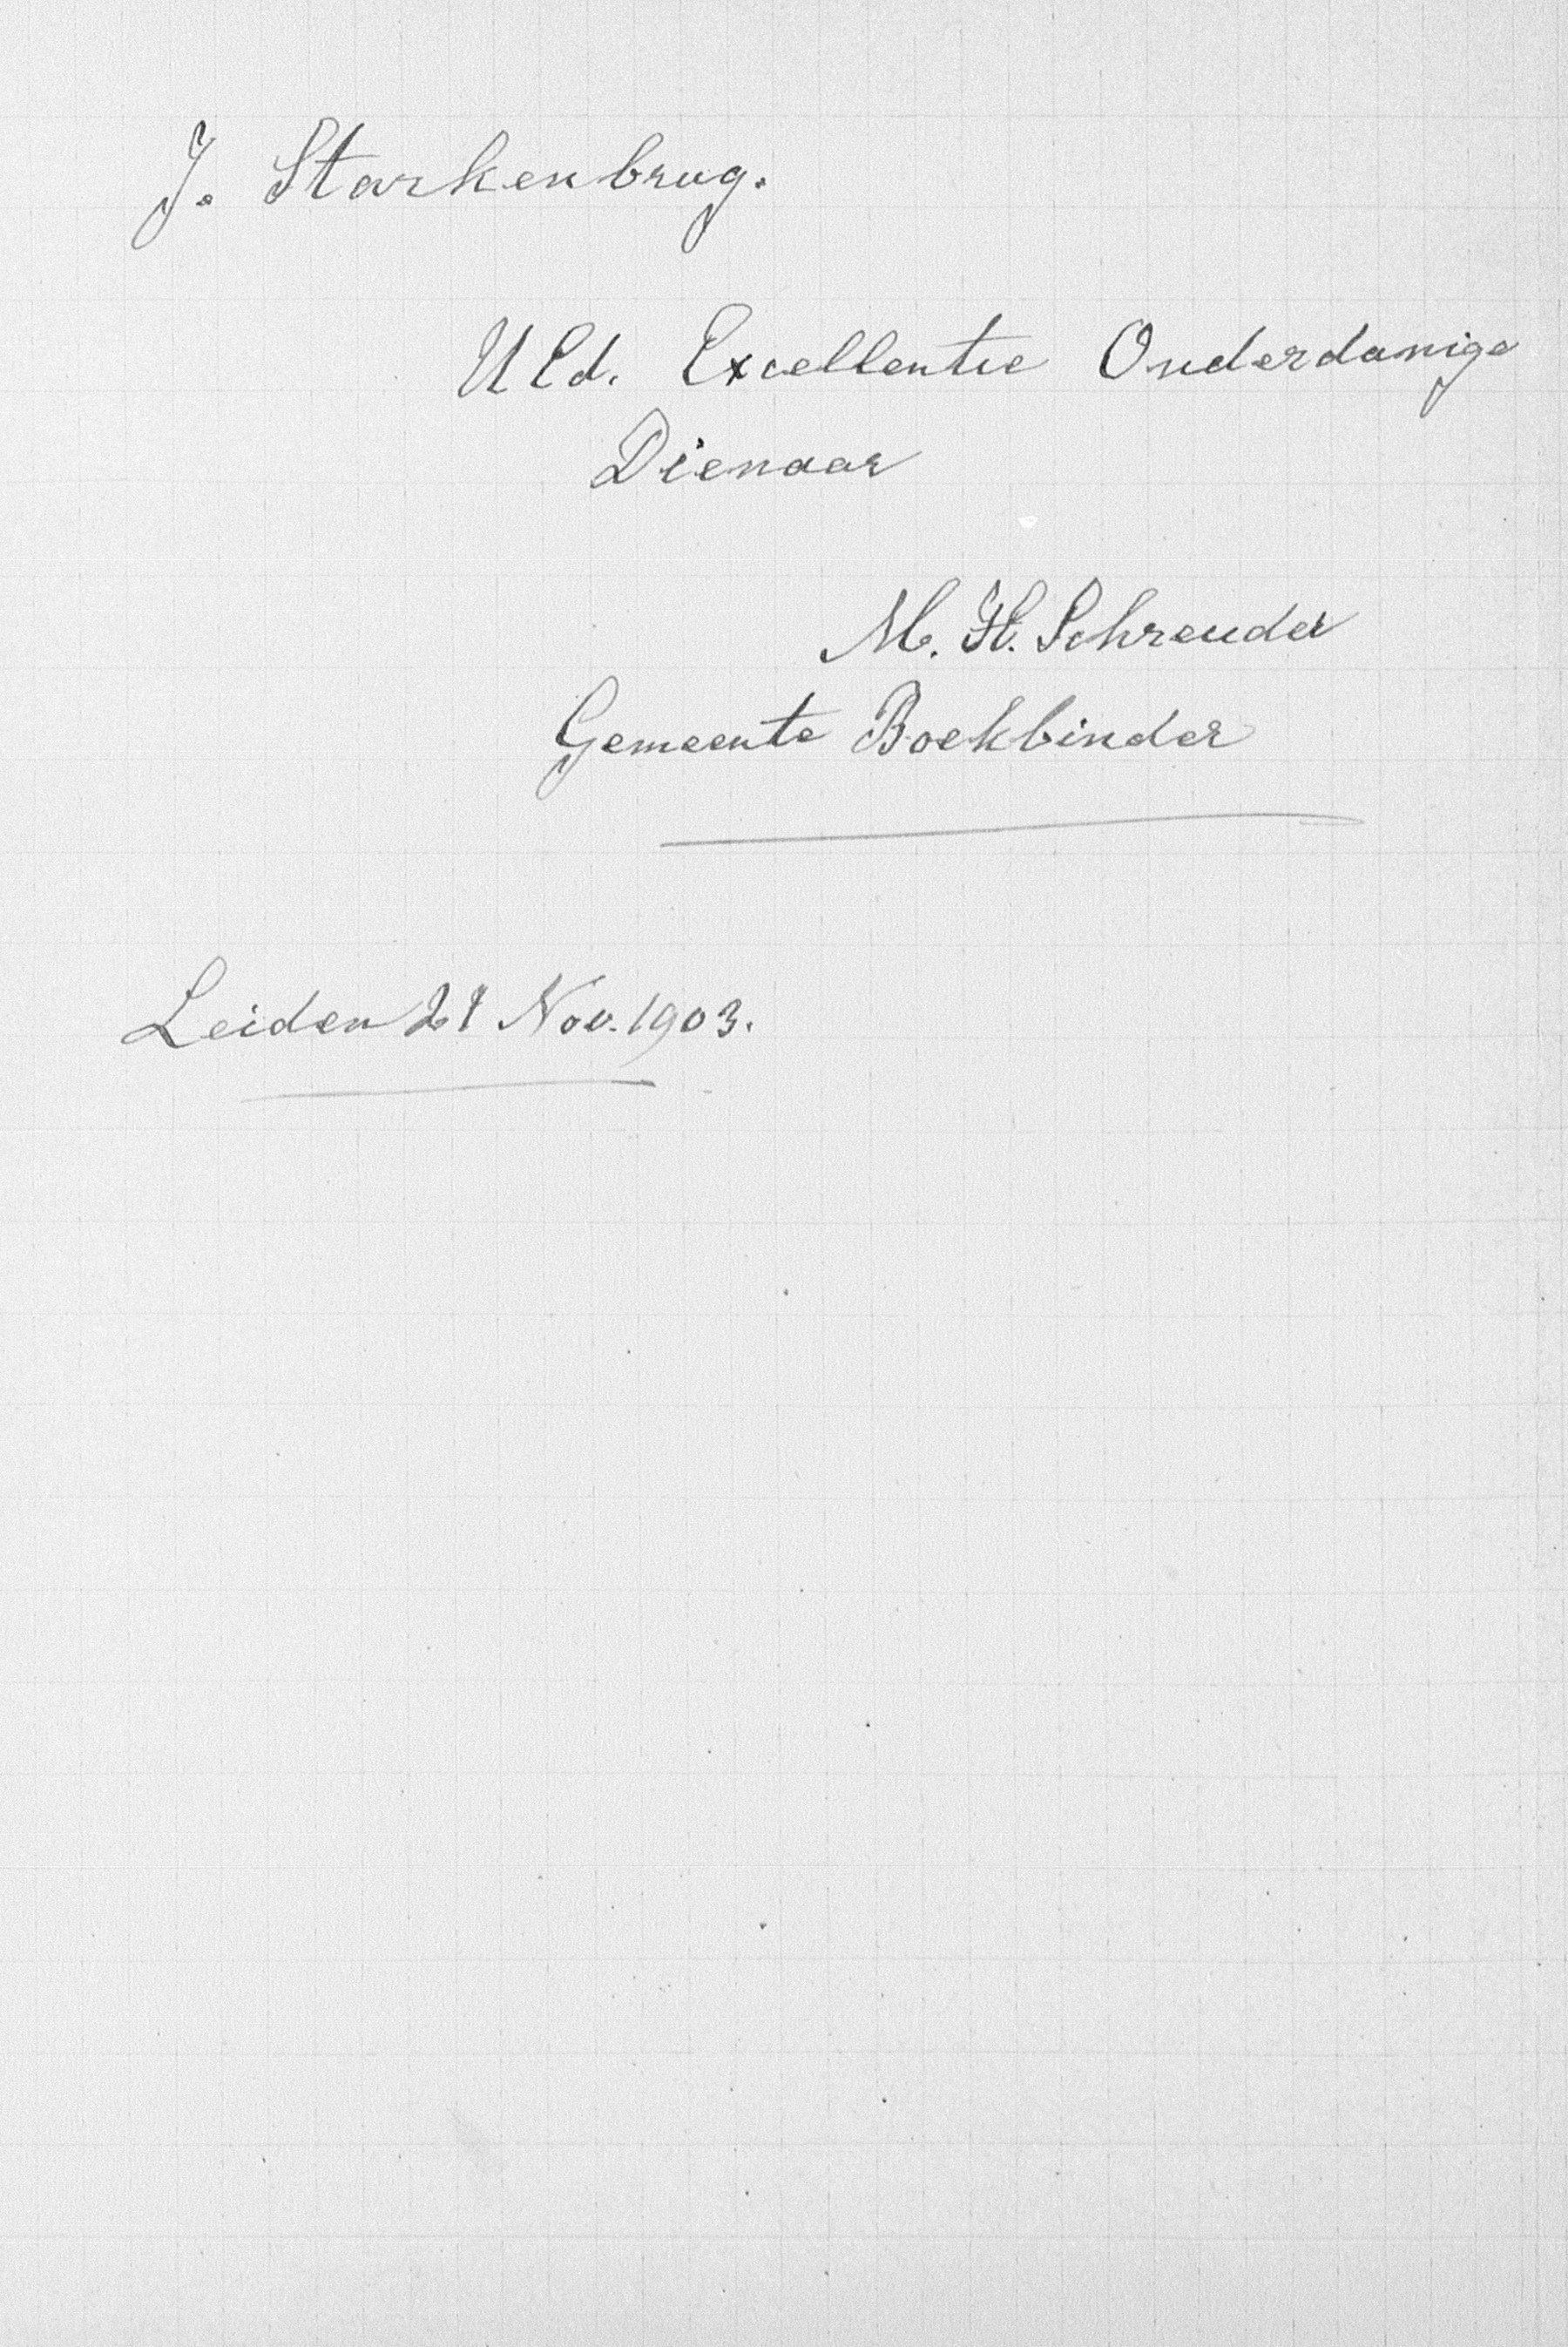 J. Starkenbrug.
UEd. Excellentie Onderdanige
Dienaar
M. H. Schreuder
Gemeente Boekbinder
Leiden 21 Nov. 1903.